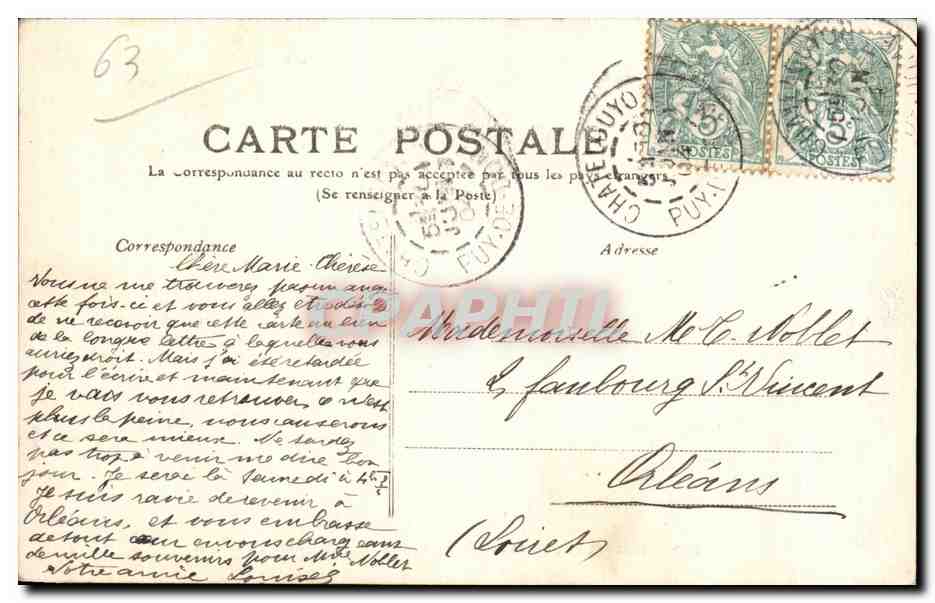 63
CARTE POSTALE
La Correspondance au recto n'est pas acceptée par tous les pays étrangers
(Se renseigner à la Poste)
CHATELGUYON
PUY-DE-DOME
5
POSTES
POSTES
CHATELGUYON
PUY-DE-DOME
Correspondance
Adresse
Chère Marie-Thérèse
Vous ne me trouverez pas un ange
cette fois-ci et vous allez être désolée
de ne recevoir que cette carte au lieu
de la longue lettre à laquelle vous
auriez droit. Mais j'ai été retardée
pour l'écrire et maintenant que
je vais vous retrouver, ce n'est
plus la peine, nous causerons
et ce sera mieux. Ne tardez
pas trop à venir me dire bon
jour. Je serai là Samedi à 4h ½
Je suis ravie de revenir à
Orléans, et vous embrasse
de tout cœur en vous chargeant
de mille souvenirs pour Mme Noblet
Votre amie Louise
Mademoiselle M. T. Noblet
2 faubourg St Vincent
Orléans
(Loiret)
CPAPHIL